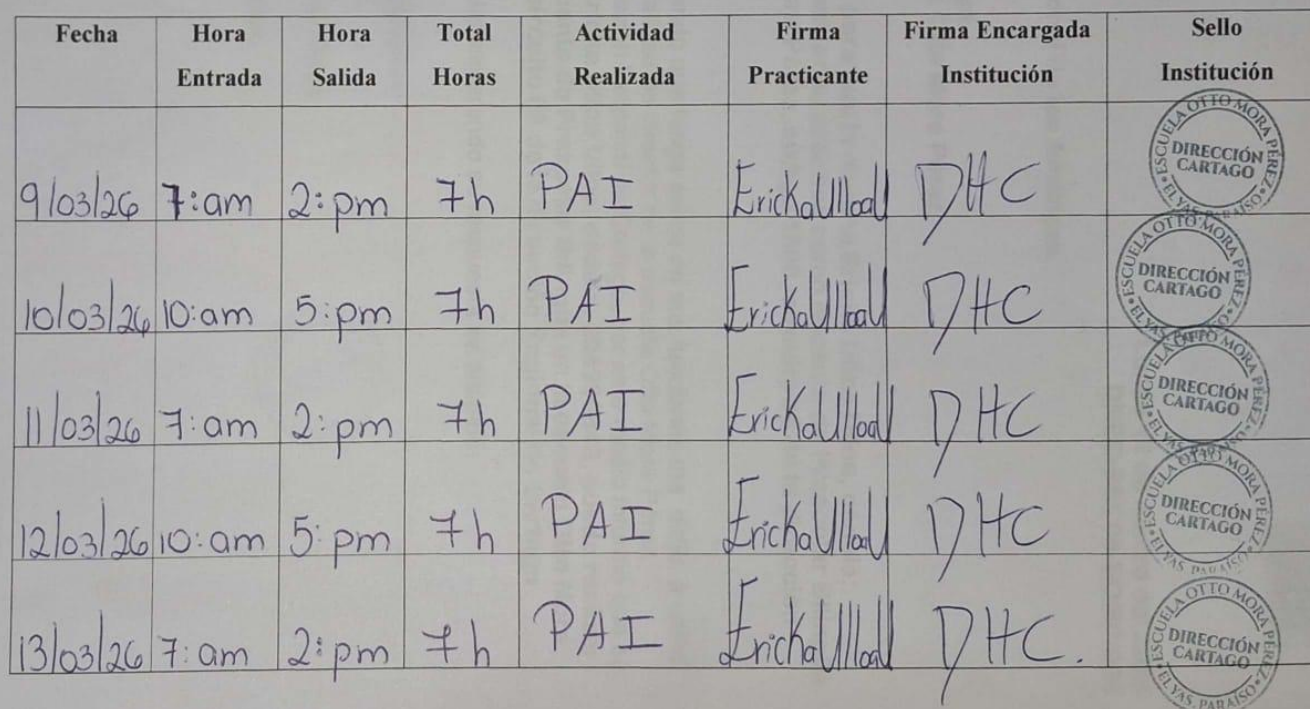 Fecha Hora Entrada Hora Salida Total Horas Actividad Realizada Firma Practicante Firma Encargada Institución Sello Institución
9/03/26 7:am 2:pm 7h PAI ErickaUlloaU DHC ESCUELA OTTO MORA PEREZ DIRECCIÓN CARTAGO EL YAS, PARAISO
10/03/26 10:am 5:pm 7h PAI ErickaUlloaU DHC ESCUELA OTTO MORA PEREZ DIRECCIÓN CARTAGO EL YAS,
11/03/26 7:am 2:pm 7h PAI ErickaUlloaU DHC ESCUELA OTTO MORA PEREZ DIRECCIÓN CARTAGO EL YAS,
12/03/26 10:am 5:pm 7h PAI ErickaUlloaU DHC ESCUELA OTTO MORA PEREZ DIRECCIÓN CARTAGO EL YAS, PARAISO
13/03/26 7:am 2:pm 7h PAI ErickaUlloaU DHC. ESCUELA OTTO MORA PEREZ DIRECCIÓN CARTAGO EL YAS, PARAISO